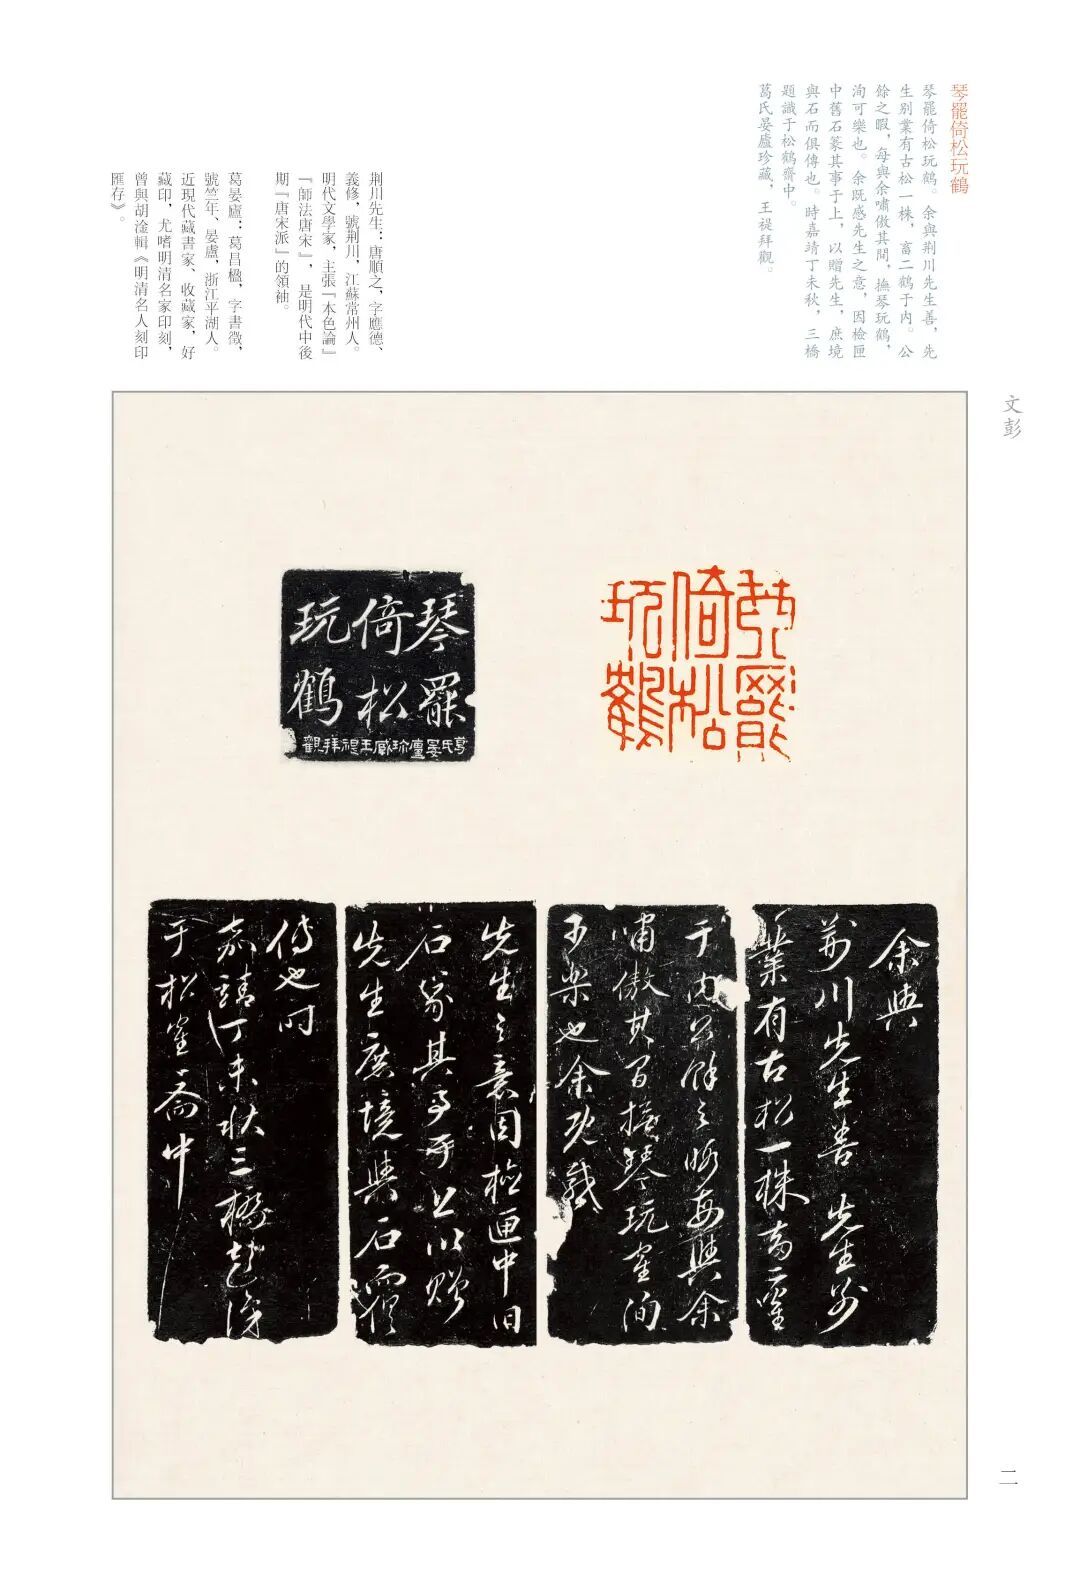 琴罷倚松玩鶴
琴罷倚松玩鶴。余與荆川先生善，先
生别業有古松一株，畜二鶴于内。公
餘之暇，每與余嘯傲其間，撫琴玩鶴，
洵可樂也。余既感先生之意，因檢匣
中舊石篆其事于上，以贈先生，庶境
與石而俱傳也。時嘉靖丁未秋，三橋
題識于松鶴齋中。
葛氏晏廬珍藏，王禔拜觀。
荆川先生：唐順之，字應德、
義修，號荆川，江蘇常州人。
明代文學家，主張『本色論』
『師法唐宋』，是明代中後
期『唐宋派』的領袖。
葛晏廬：葛昌楹，字書徵，
號竺年、晏廬，浙江平湖人。
近現代藏書家、收藏家，好
藏印，尤嗜明清名家印刻，
曾與胡淦輯《明清名人刻印
匯存》。
文彭
琴罷
倚松
玩鶴
琴罷
倚松
玩鶴
葛氏晏廬珍藏王禔拜觀
余與
荆川先生善先生别
業有古松一株畜二鶴
于内公餘之暇每與余
嘯傲其間撫琴玩鶴洵
可樂也余既感
先生之意因檢匣中旧
石篆其事于上以贈
先生庶境與石而俱
傳也时
嘉靖丁未秋三橋題識
于松鶴斋中
二